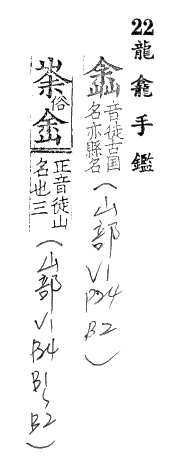 22 龍龕手鑑
音徒古国
名亦縣名
(山部 V1 P34 B2)
俗
正音徒山
名也三
(山部 V1 B4 B1、B2)